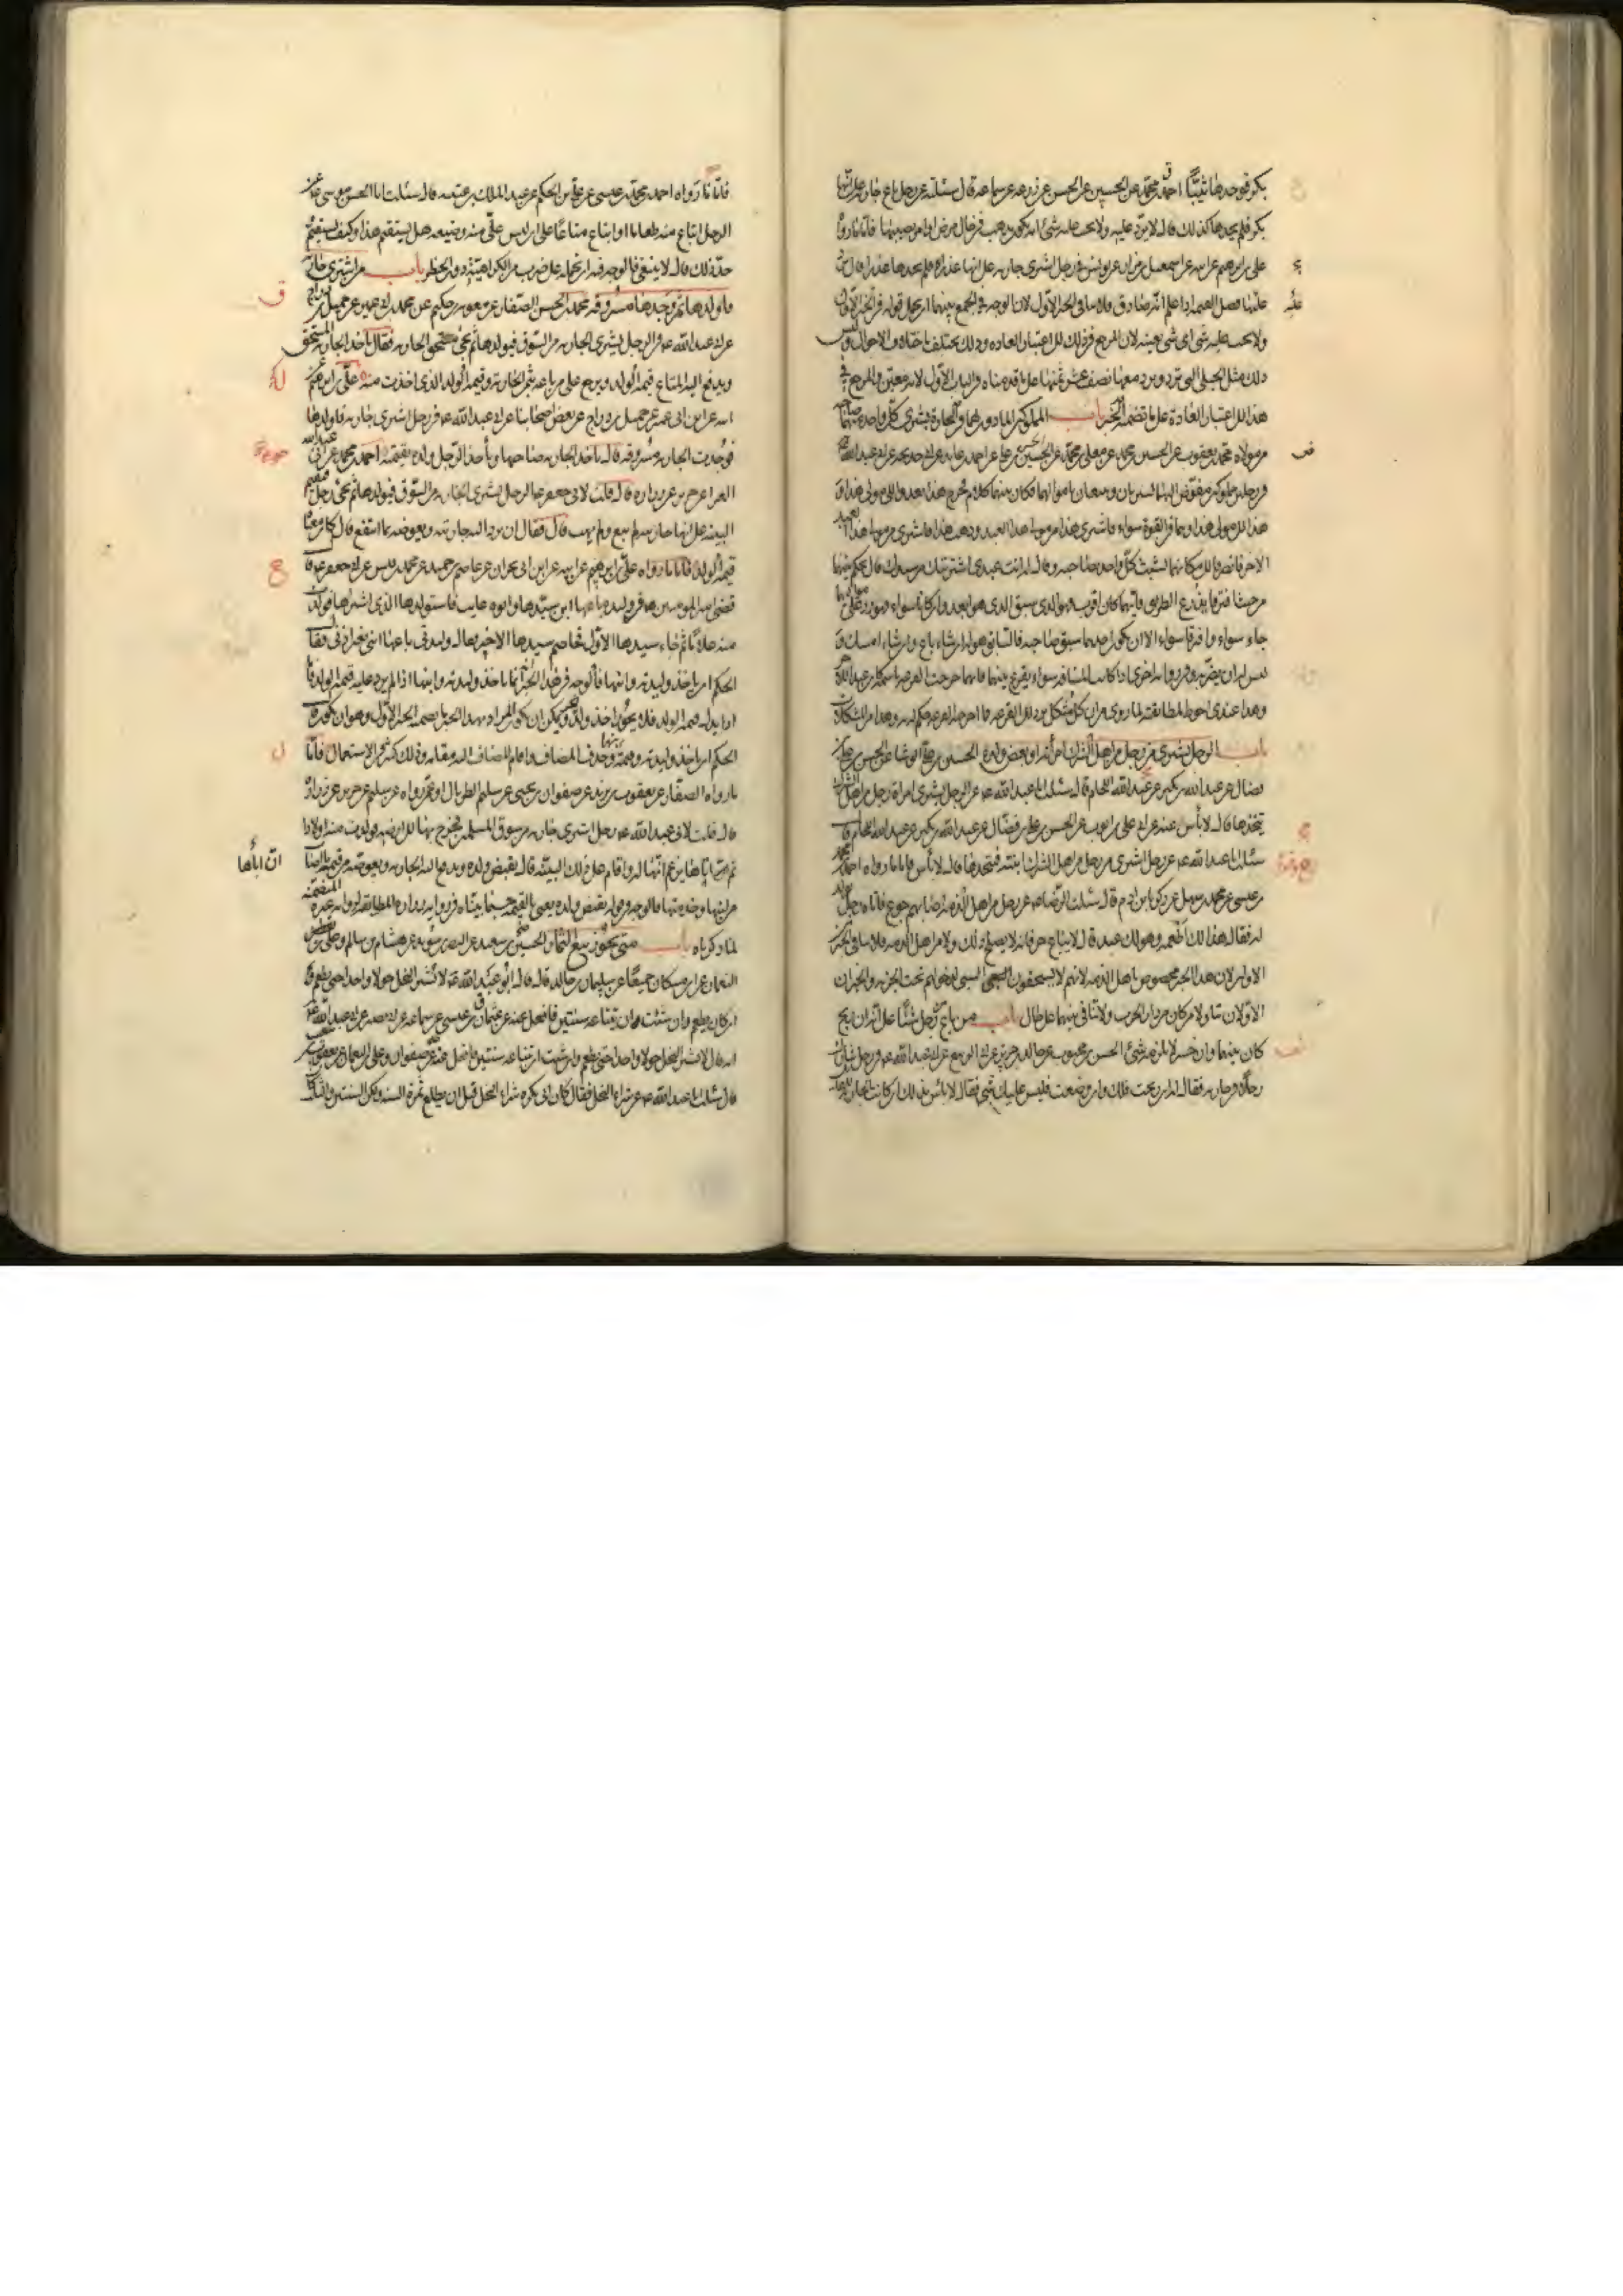 بكر فوجدها ثيبا احمد بن محمد عن الحسين عن الحسن عن زرعة عن سماعة قال سئلته عن رجل باع جارية على انها
بكر فلم يجدها كذلك قال لا يرد عليه ولا يجب عليه شئ انه يكون يذهب في حال مرض او امر يصيبها فاما ما رواه
علي بن ابراهيم عن ابيه عن اسمعيل بن مرار عن يونس في رجل اشترى جارية على انها عذراء فلم يجدها عذراء قال يرد
عليه فضل القيمة اذا علم انه صادق فلا ينافي الخبر الاول لان الوجه في الجمع بينهما ان نحمل قوله في الخبر الاول
ولا يجب عليه شئ اى شئ بعينه لان المرجع في ذلك الى اعتبار العادة وذلك يختلف باختلاف الاحوال وليس
ذلك مثل الحبلى التي ترد ويرد معها نصف عشر ثمنها على ما قدمناه في الباب الاول لانه معين والمرجع في
هذا الى اعتبار العادة على ما تضمنه الخبر باب المملوكين المأذون لهما في التجارة يشترى كل واحد منهما صاحبه
من مولاه محمد بن يعقوب عن الحسين بن محمد عن معلى بن محمد عن الحسن بن علي عن احمد بن عائذ عن ابي خديجة عن ابي عبدالله ع
في رجلين مملوكين مفوض اليهما يشتريان ويبيعان باموالهما فكان بينهما كلام فخرج هذا يعدو الى مولى هذا و
هذا الى مولى هذا وهما في القوة سواء فاشترى هذا من مولى هذا العبد وذهب هذا فاشترى من مولى هذا العبد
الاخر فانصرفا الى مكانهما فتشبث كل واحد منهما بصاحبه وقال له انت عبدى اشتريتك من سيدك قال يحكم بينهما
من حيث افترقا يذرع الطريق فايهما كان اقرب فهو الذى سبق الذى هو ابعد وان كانا سواء فهو رد على مواليهما
جاءا سواء وافترقا سواء الا ان يكون احدهما سبق صاحبه فالسابق هو له ان شاء باع وان شاء امسك و
ليس له ان يضربه وفي رواية اخرى اذا كانت المسافة سواء يقرع بينهما فايهما خرجت القرعة باسمه كان عبدا للاخر
وهذا عندى احوط لمطابقته لما روى من ان كل مشكل يرد الى القرعة فما اخرجه القرعة حكم به وهذا من المشكلات
باب الرجل يشترى من رجل من اهل الشرك امرأته او بعض ولده الحسين بن علي الوشا عن الحسن بن علي بن
فضال عن عبدالله بن بكير عن عبدالله اللحام قال سئلت ابا عبدالله ع عن الرجل يشترى امراة رجل من اهل الشرك
يتخذها قال لا بأس عنه عن ابي علي بن ايوب عن الحسن بن علي بن فضال عن عبدالله بن بكير عن عبدالله اللحام قال
سئلت ابا عبدالله ع عن رجل اشترى من رجل من اهل الشرك ابنته فيتخذها قال لا بأس فاما ما رواه احمد بن محمد
بن عيسى عن محمد بن سهل عن زكريا بن ادم قال سئلت الرضا ع عن رجل من اهل الذمة اصابهم جوع فاتاه رجل بولد
له فقال هذا لك اطعمه وهو لك عبد قال لا يبتاع حر فانه لا يصلح لك ولا من اهل الذمة فلا ينافي الخبرين
الاولين لان هذا الخبر مخصوص باهل الذمة لانهم لا يستحقون السبي لدخولهم تحت الجزية والخبران
الاولان تناولا من كان من دار الحرب ولا تنافي بينهما على حال باب من باع من رجل شيئا على انه ان ربح
كان بينهما وان خسر لا يلزمه شئ الحسن بن محبوب عن خالد بن جرير عن ابي الربيع عن ابي عبدالله ع في رجل شارك
رجلا في جارية فقال له ان ربحت فلك وان وضعت فليس عليك شئ فقال لا بأس بذلك ان كانت الجارية للقائل
فاما ما رواه احمد بن محمد بن عيسى عن علي بن الحكم عن عبد الملك بن عتبة قال سئلت ابا الحسن موسى ع عن
الرجل ابتاع منه طعاما او ابتاع متاعا على ان ليس علي منه وضيعة هل يستقيم هذا وكيف يستقيم
حد ذلك قال لا ينبغي فالوجه فيه ان نحمله على ضرب من الكراهية دون الحظر باب من اشترى جارية
فاولدها ثم وجدها مسروقة محمد بن الحسن الصفار عن معوية بن حكيم عن محمد بن ابي عمير عن جميل بن دراج
عن ابي عبدالله ع في الرجل يشترى الجارية من السوق فيولدها ثم يجئ مستحق الجارية فقال ياخذ الجارية المستحق
ويدفع اليه المبتاع قيمة الولد ويرجع على من باعه بثمن الجارية وقيمة الولد الذى اخذت منه علي بن ابراهيم عن
ابيه عن ابن ابي عمير عن جميل بن دراج عن بعض اصحابنا عن ابي عبدالله ع في رجل اشترى جارية فاولدها
فوجدت الجارية مسروقة قال ياخذ الجارية صاحبها ويأخذ الرجل ولده بقيمته احمد بن محمد عن ابي عبدالله
الفراء عن حريز عن زرارة قال قلت لابي جعفر ع الرجل يشترى الجارية من السوق فيولدها ثم يجئ رجل فيقيم
البينة على انها جاريته لم يبع ولم يهب قال فقال ان يرد اليه جاريته ويعوضه بما انتفع قال كان معناه
قيمة الولد فاما ما رواه علي بن ابراهيم عن ابيه عن ابن ابي نجران عن عاصم بن حميد عن محمد بن قيس عن ابي جعفر ع قال
قضى امير المؤمنين ع في وليدة باعها ابن سيدها وابوه غايب فاستولدها الذى اشتراها فولدت
منه غلاما ثم جاء سيدها الاول فخاصم سيدها الاخير فقال وليدتى باعها ابنى بغير اذنى فقال
الحكم ان ياخذ وليدته وابنها فالوجه في هذا الخبر انما ياخذ وليدته وابنها اذا لم يرد عليه قيمة الولد فاما
اذا بذل قيمة الولد فلا يجوز اخذ ولده ويمكن ان يكون المراد بهذا الخبر ما تضمنه الخبر الاول وهو ان يكون قال
الحكم ان ياخذ وليدته وقيمة ابنها وحذف المضاف واقام المضاف اليه مقامه وذلك كثير في الاستعمال فاما
ما رواه الصفار عن يعقوب بن يزيد عن صفوان بن يحيى عن سليم الطربال او عمن رواه عن سليم عن حريز عن زرارة
قال قلت لابي عبدالله ع رجل اشترى جارية من سوق المسلمين فخرج بها الى ارضه فولدت منه اولادا
ثم ان اباها يزعم انها له واقام على ذلك البينة قال يقبض ولده ويدفع اليه الجارية ويعوضه من قيمة ما اصاب
ان اباها
من لبنها وخدمتها فالوجه في قوله يقبض ولده يعنى بالقيمة حسبما بيناه في رواية زرارة المطابقة لرواية غيره المتضمنة
لما ذكرناه باب متى يجوز بيع الثمار الحسين بن سعيد عن النضر بن سويد عن هشام بن سالم وعلي بن
النعمان عن ابن مسكان جميعا عن سليمان بن خالد قال قال ابو عبدالله ع لا تشتر النخل حولا واحدا حتى يطعم و
ان كان يطعم وان شئت ان تبتاعه سنتين فافعل عنه عن عثمان بن عيسى عن سماعة عن ابي بصير عن ابي عبدالله ع
انه قال لا تشتر النخل حولا واحدا حتى يطعم وان شئت ان تبتاعه سنتين فافعل عنه عن صفوان وعلي بن النعمان عن يعقوب بن شعيب
قال سئلت ابا عبدالله ع عن شراء النخل فقال كان ابي يكره شراء النخل قبل ان يطلع ثمرة السنة ولكن السنتين والثلاث